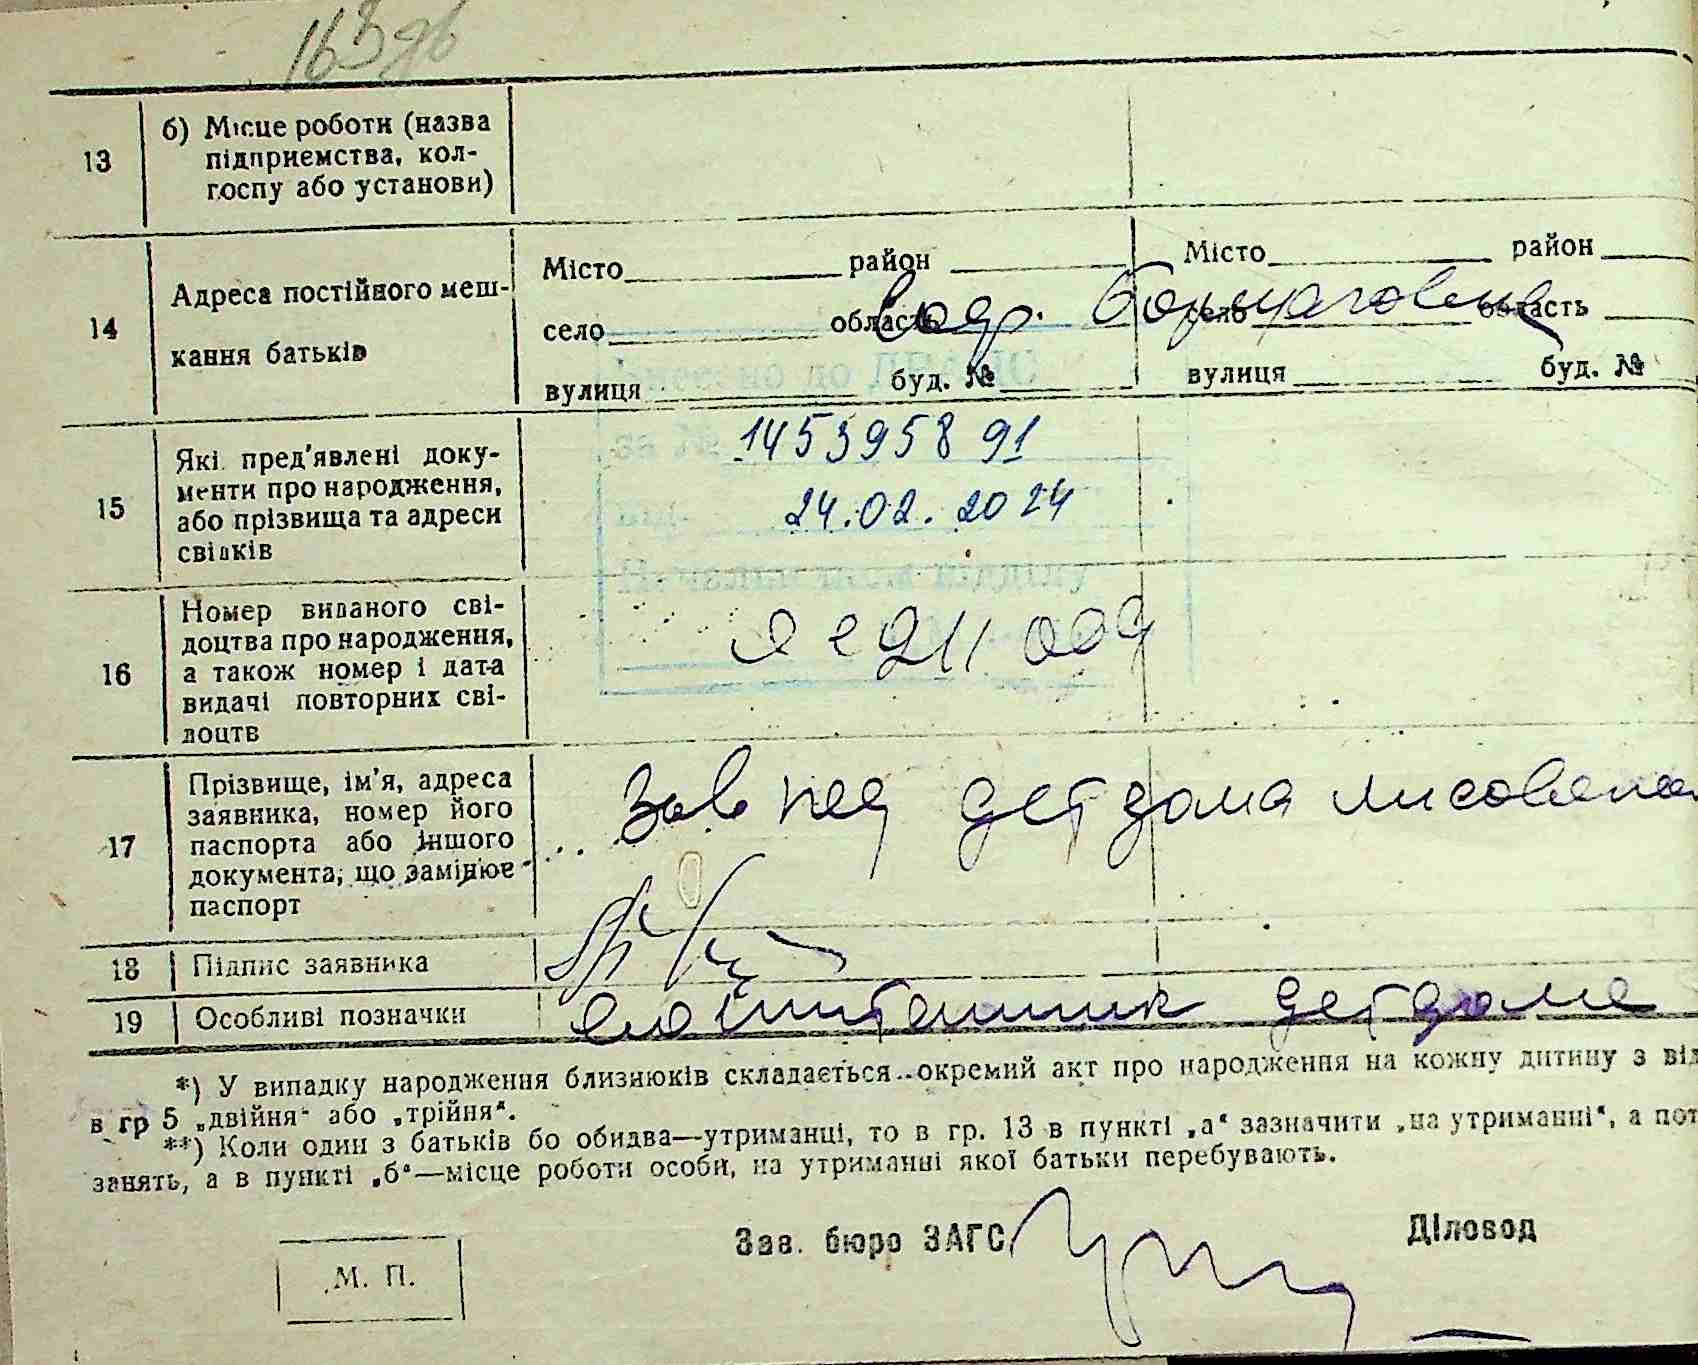 13 б) Місце роботи (назва
підприємства, кол-
госпу або установи)
14 Адреса постійного меш-
кання батьків
Місто район
село область
вулиця буд. №
Місто район
село область
вулиця буд. №
15 Які пред'явлені доку-
менти про народження,
або прізвища та адреси
свідків
Внесено до ДРАЦС
за № 1453958 91
від 24.02.2024
Начальником відділу
16 Номер виданого сві-
доцтва про народження,
а також номер і дата
видачі повторних сві-
доцтв
211 009
17 Прізвище, ім'я, адреса
заявника, номер його
паспорта або іншого
документа, що замінює
паспорт
Зав пед детдома
18 Підпис заявника
19 Особливі позначки
детдома
*) У випадку народження близнюків складається окремий акт про народження на кожну дитину з від
в гр 5 „двійня“ або „трійня“.
**) Коли один з батьків бо обидва—утриманці, то в гр. 13 в пункті „а“ зазначити „на утриманні“, а пот
занять, а в пункті „б“—місце роботи особи, на утриманні якої батьки перебувають.
М. П.
Зав. бюро ЗАГС
Діловод